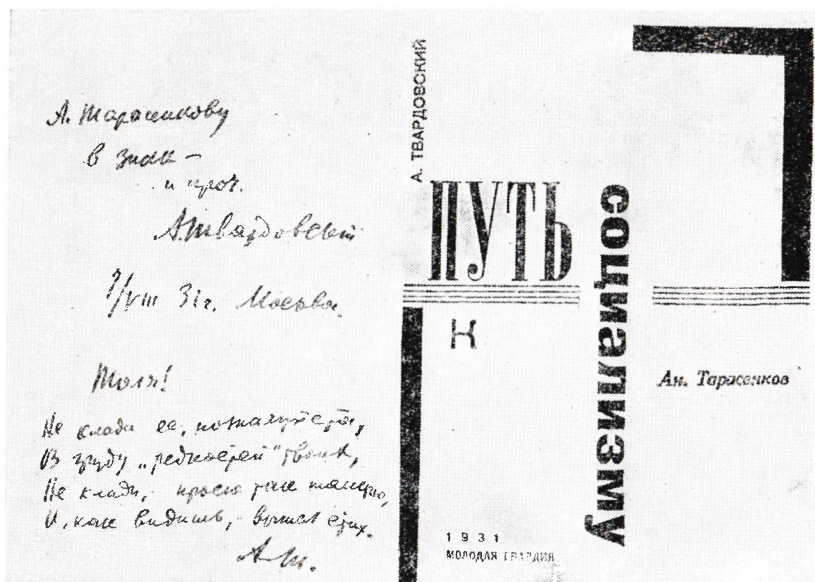 А. Тарасенкову
в знак –
и проч.
А. Твардовский
31 г. Москва.
Толя!
Не клади ее, пожалуйста,
В груду „редкостей“ твоих,
Не клади, – прошу так
И, как видишь, – вышел стих.
А. Т.
А. ТВАРДОВСКИЙ
ПУТЬ
К
СОЦИАЛИЗМУ
1931
МОЛОДАЯ ГВАРДИЯ
Ан. Тарасенков